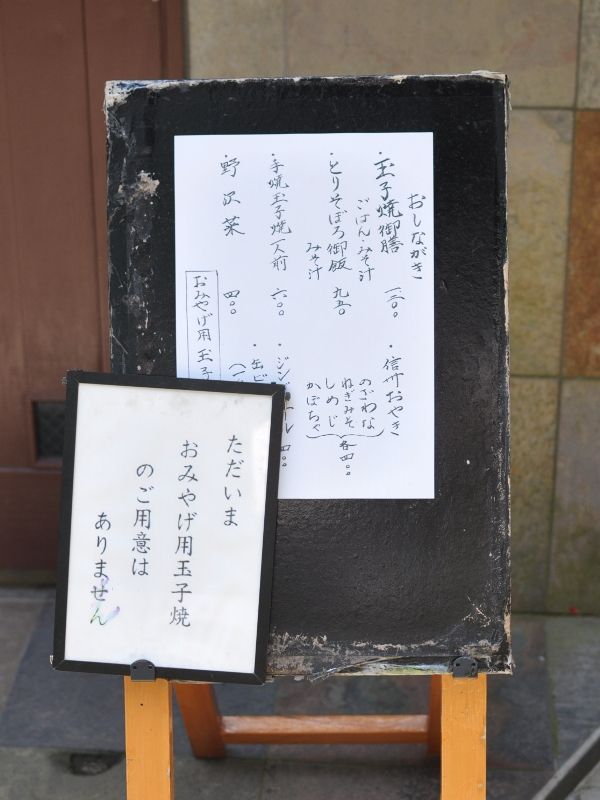 おしながき
・玉子焼御膳 一三〇〇
ごはん・みそ汁
・とりそぼろ御飯 九五〇
みそ汁
・手焼玉子焼一人前 六〇〇
・野沢菜 四〇〇
おみやげ用 玉子
・信州おやき
のざわな
ねぎみそ
しめじ
かぼちゃ
各四〇〇
・ジン
ル 四〇〇
・缶ビ
ただいま
おみやげ用玉子焼
のご用意は
ありません